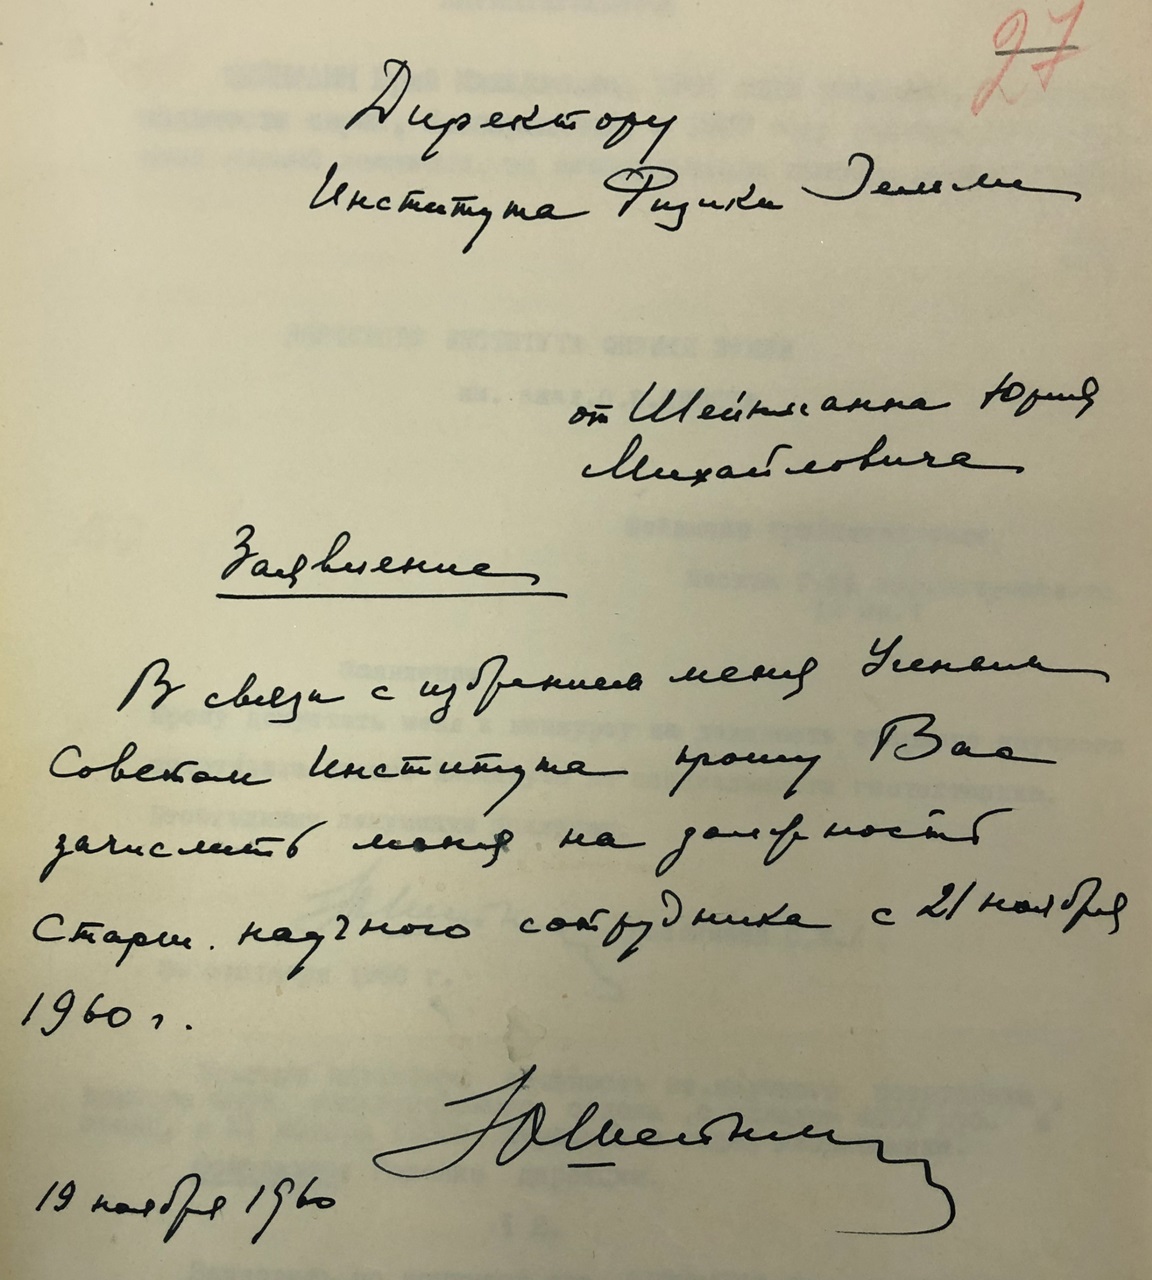 27
Директору
Института Физики Земли
от Шейнманна Юрия
Михайловича
Заявление
В связи с избранием меня Ученым
Советом Института прошу Вас
зачислить меня на должность
Старш. научного сотрудника с 21 ноября
1960 г.
ЮШейнман
19 ноября 1960